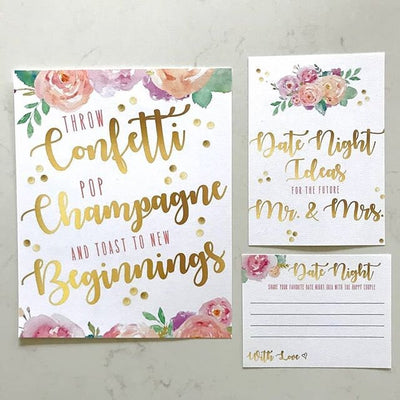 THROW
Confetti
POP
Champagne
AND TOAST TO NEW
Beginnings
Date Night
Ideas
FOR THE FUTURE
Mr. & Mrs.
Date Night
SHARE YOUR FAVORITE DATE NIGHT IDEA WITH THE HAPPY COUPLE
With Love ♡